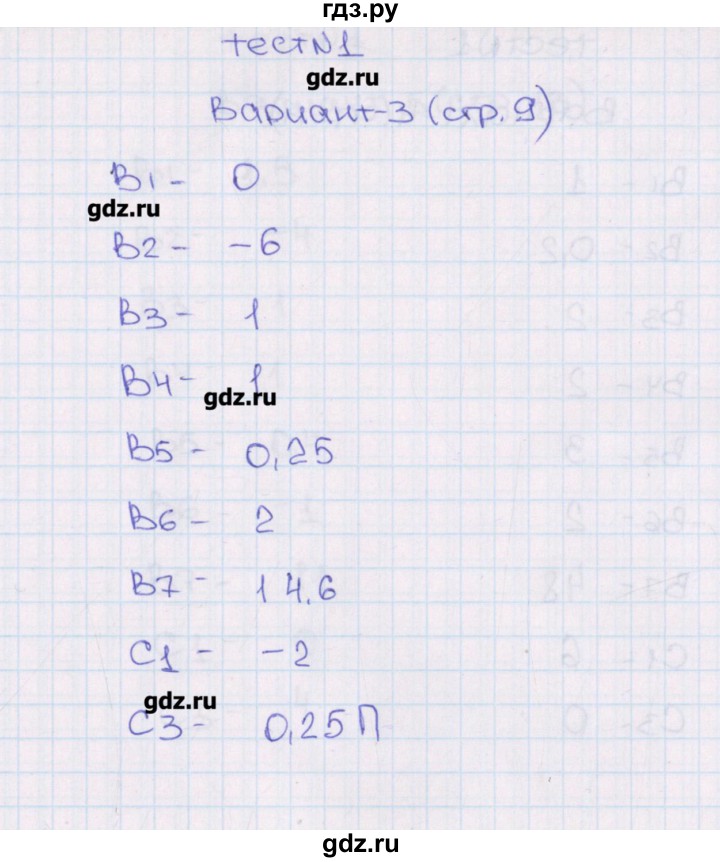 гдз.ру
тест N1
gdz.ru
Вариант-3 (стр.9)
В1 - 0
gdz.ru
В2 - -6
В3 - 1
В4 - 1
gdz.ru
В5 - 0,25
В6 - 2
В7 - 14.6
С1 - -2
gdz.ru
С3 - 0,25П
gdz.ru